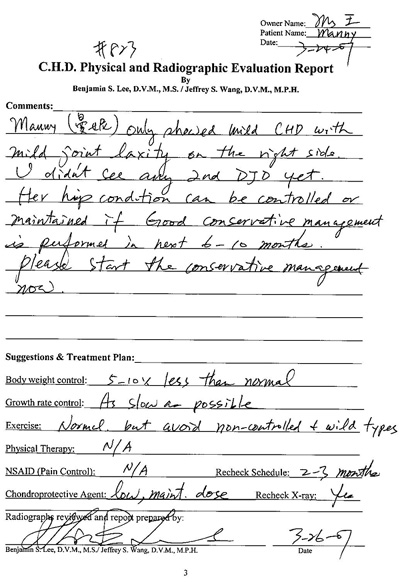 Owner Name: Ms 王
#823 Patient Name: Manny
Date: 3-24-07
C.H.D. Physical and Radiographic Evaluation Report
By
Benjamin S. Lee, D.V.M., M.S. / Jeffrey S. Wang, D.V.M., M.P.H.
Comments:
Manny (曼妮) only showed mild CHD with
mild joint laxity on the right side.
I didn't see any 2nd DJD yet.
Her hip condition can be controlled or
maintained if Good conservative management
is performed in next 6-10 months.
Please start the conservative management
now.
Suggestions & Treatment Plan:
Body weight control: 5-10% less than normal
Growth rate control: As slow as possible
Exercise: Normal but avoid non-controlled & wild types
Physical Therapy: N/A
NSAID (Pain Control): N/A Recheck Schedule: 2-3 months
Chondroprotective Agent: low, maint. dose Recheck X-ray: Yes
Radiographs reviewed and report prepared by:
3-26-07
Benjamin S. Lee, D.V.M., M.S./ Jeffrey S. Wang, D.V.M., M.P.H. Date
3